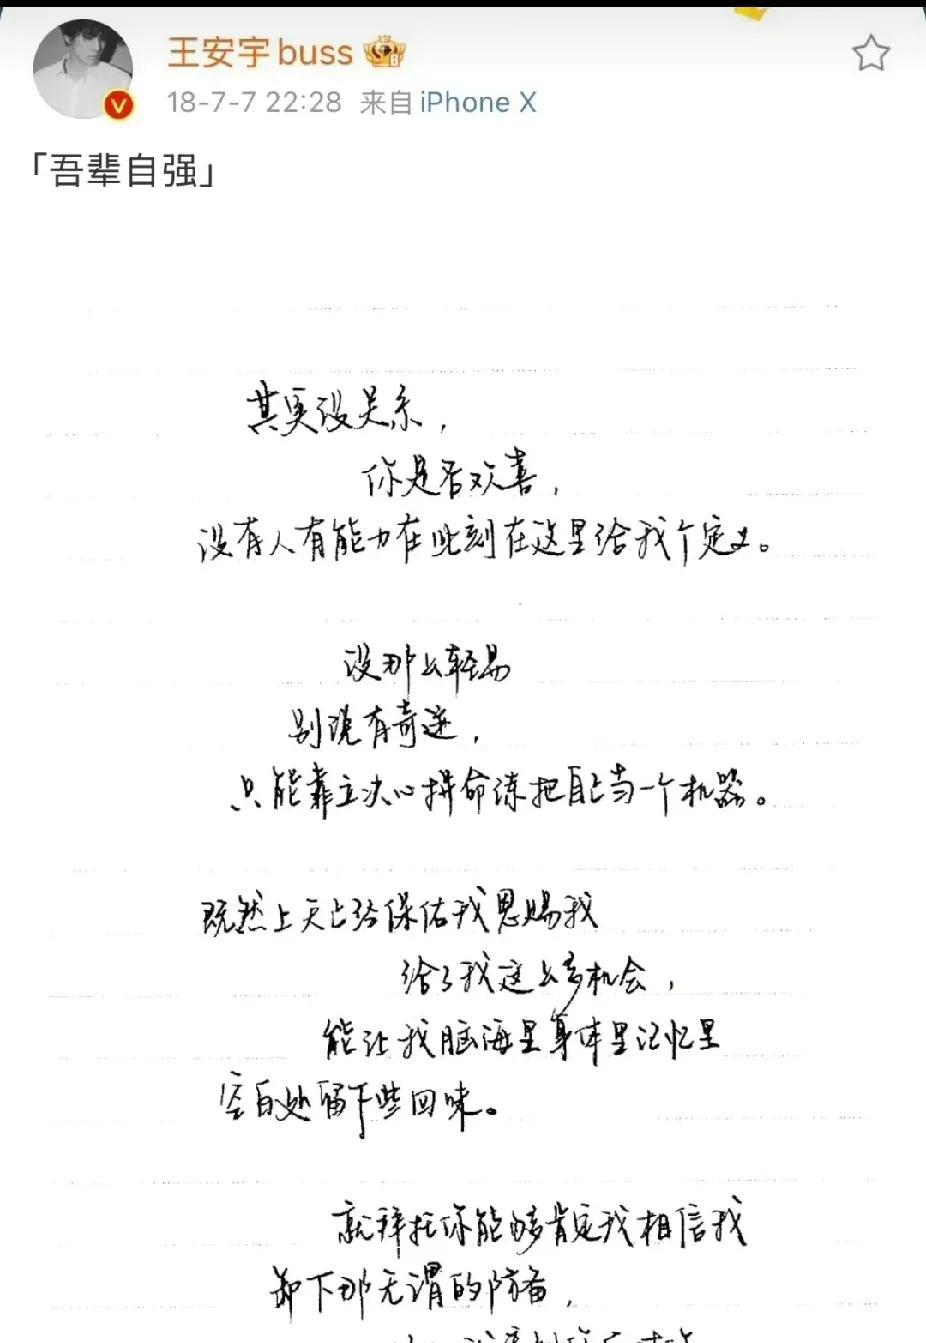 王安宇buss
18-7-7 22:28 来自 iPhone X
「吾辈自强」
其实没关系，
你是否欢喜，
没有人有能力在此刻在这里给我个定义。
没那么轻易
别说有奇迹，
只能靠立决心拼命练把自己当一个机器。
既然上天已经保佑我恩赐我
给了我这么多机会，
能让我脑海里身体里记忆里
空白处留下些回味。
就拜托你能够肯定我相信我
卸下那无谓的防备，